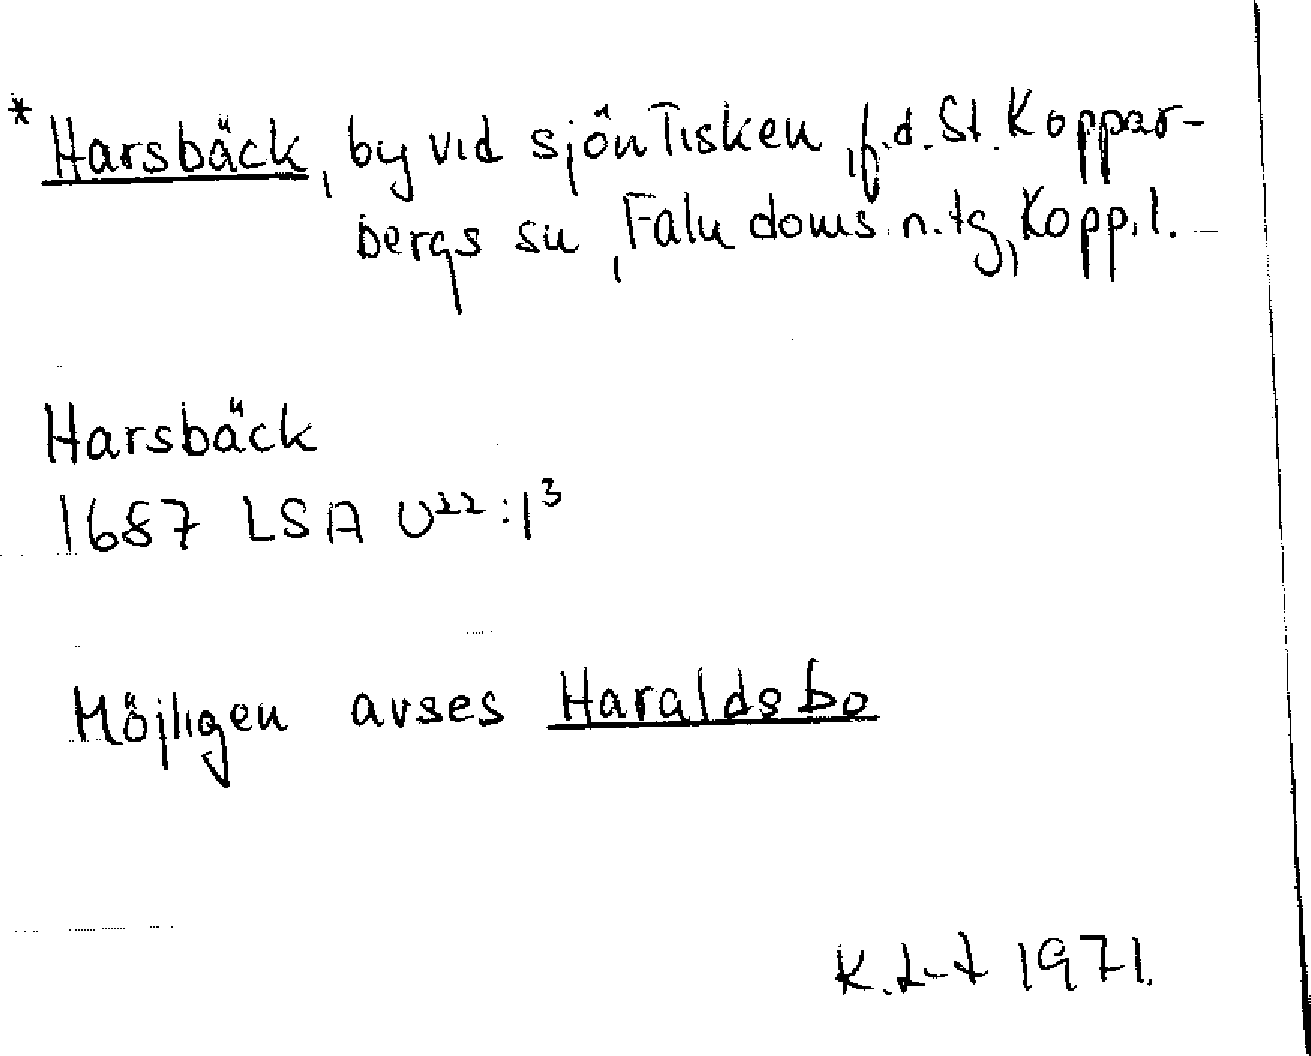 *Harsbäck, by vid sjön Tisken, f.d. St. Koppar-
bergs sn, Falu doms.n.tg, Kopp.l.
Harsbäck
1687 LSA U²²:1³
Möjligen avses Haraldsbo
K.L-d 1971.